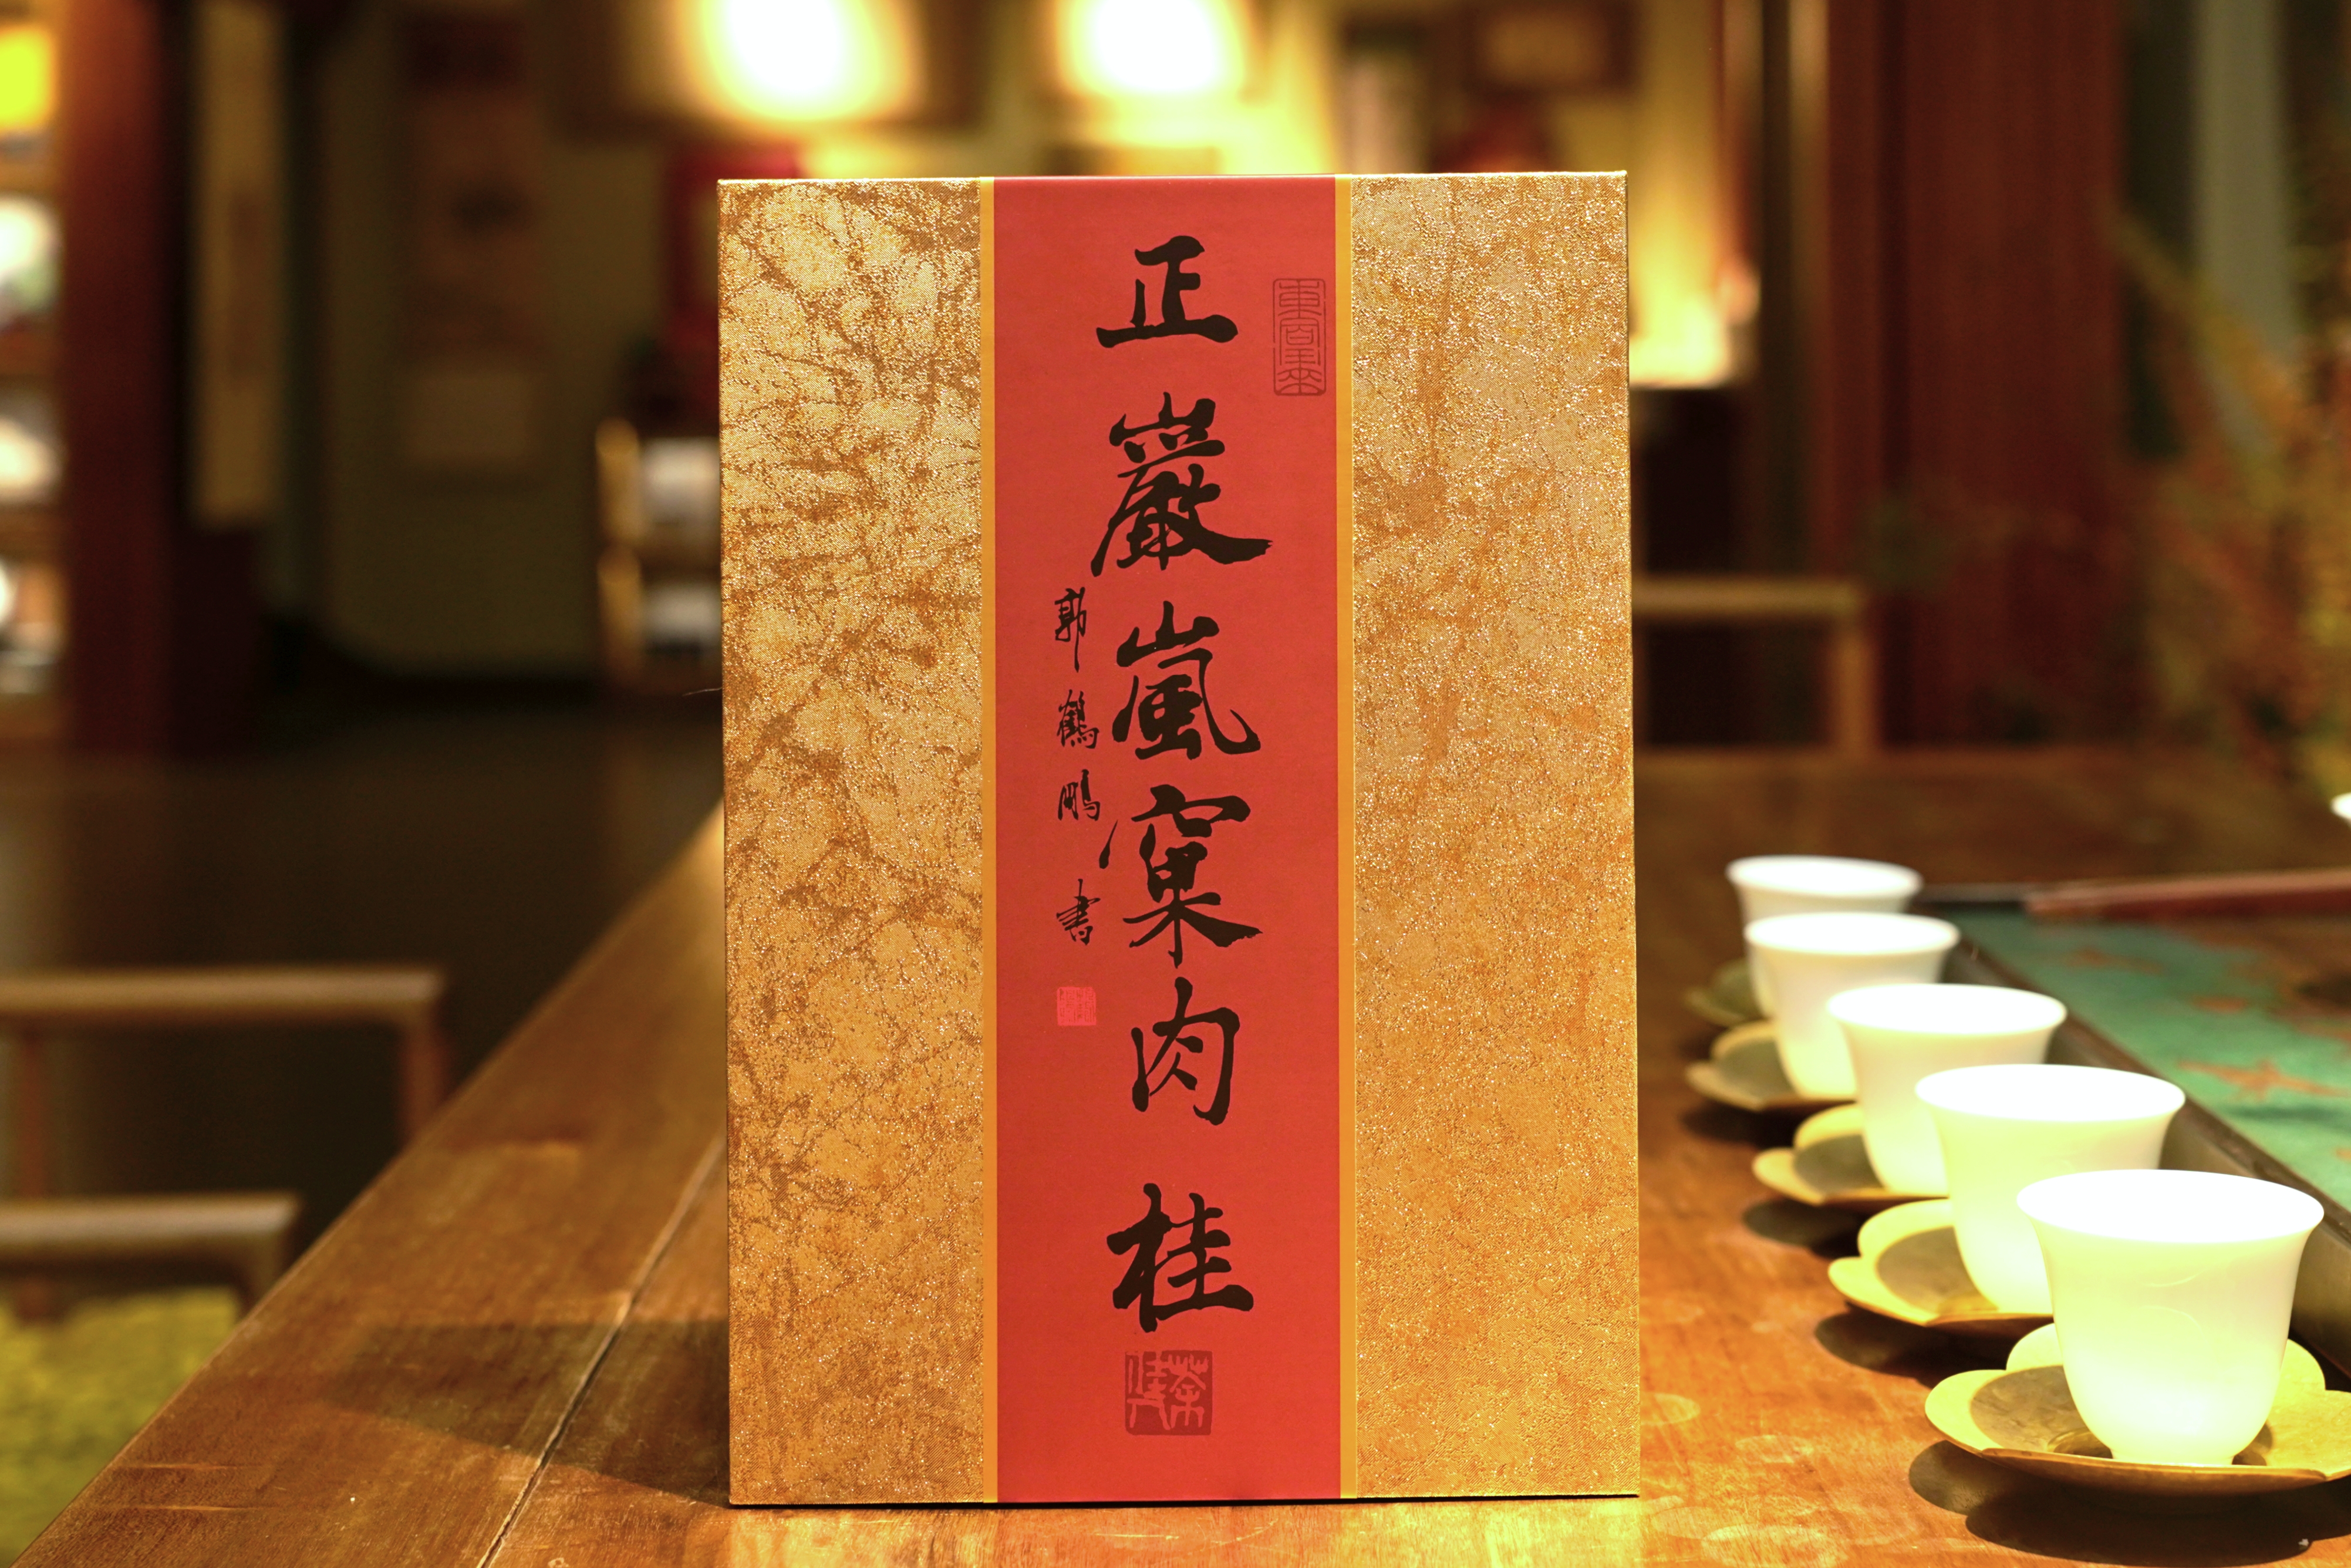 正巖嵐窠肉桂
郭鶴鵬書